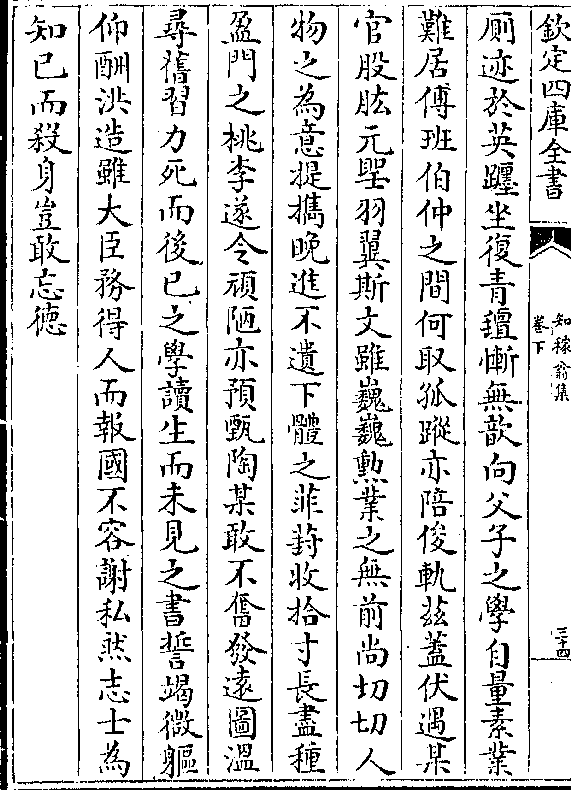 欽定四庫全書
知稼翁集
卷下
三十四
厠迹於英躔坐復青氊慚無歆向父子之學自量素業
難居傅班伯仲之間何取孤蹤亦陪俊軌兹蓋伏遇某
官股肱元聖羽翼斯文雖巍巍勲業之無前尚切切人
物之為意提攜晚進不遺下體之菲葑收拾寸長盡種
盈門之桃李遂令頑陋亦預甄陶某敢不奮發遠圖溫
尋舊習力死而後已之學讀生而未見之書誓竭微軀
仰酬洪造雖大臣務得人而報國不容謝私然志士為
知己而殺身豈敢忘德